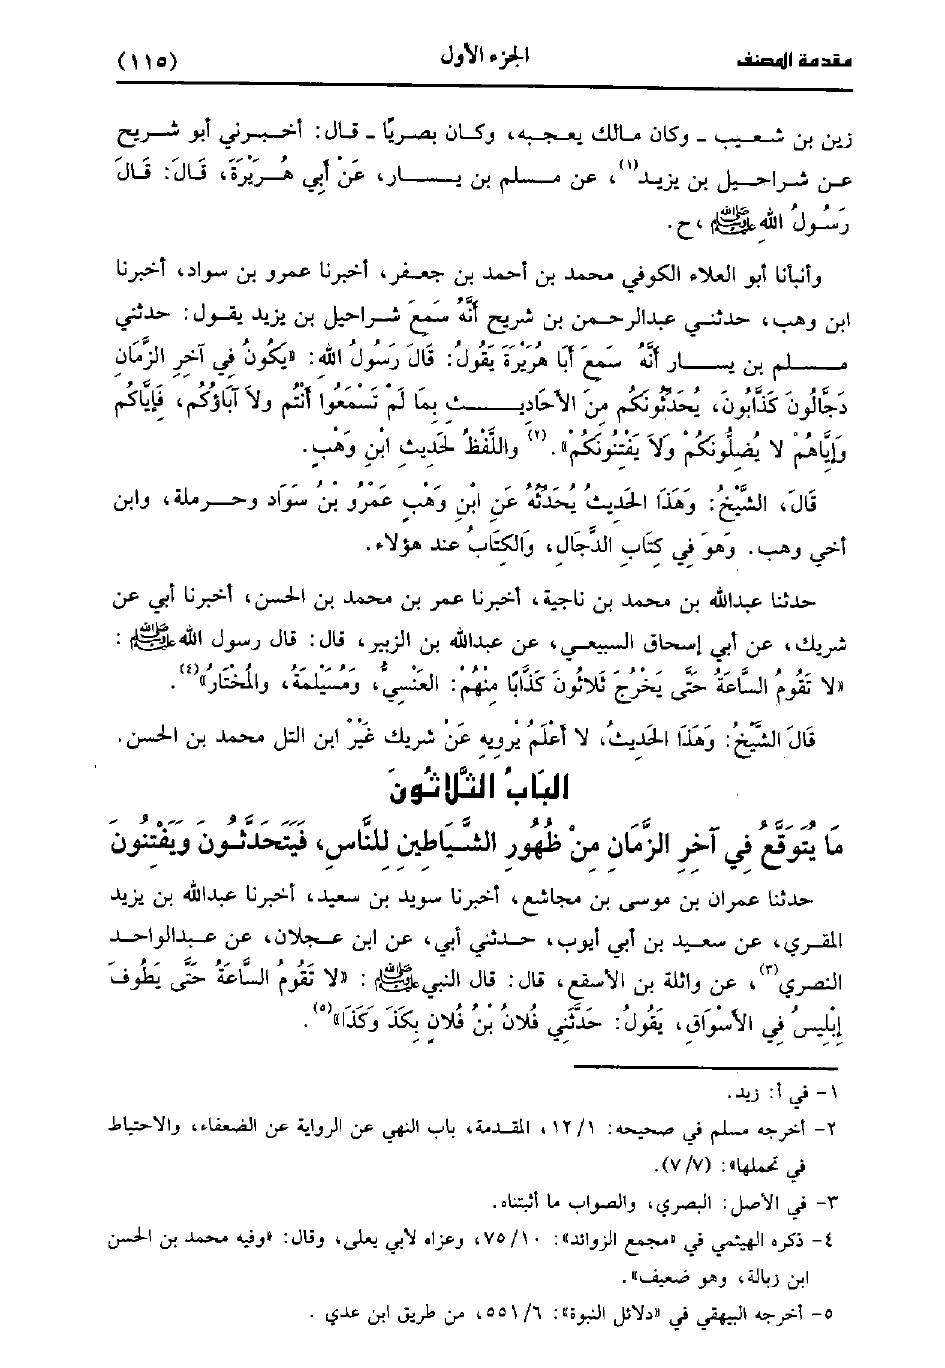 مقدمة المصنف الجزء الأول (١١٥)
زين بن شعيب ـ وكان مالك يعجبه، وكان بصريًا ـ قال: أخبرني أبو شريح
عن شراحيل بن يزيد(١)، عن مسلم بن يسار، عَنْ أَبِي هُرَيْرَةَ، قَالَ: قَالَ
رَسُولُ اللهِ ﷺ ،ح.
وأنبأنا أبو العلاء الكوفي محمد بن أحمد بن جعفر، أخبرنا عمرو بن سواد، أخبرنا
ابن وهب، حدثني عبدالرحمن بن شريح أَنَّهُ سَمَعَ شراحيل بن يزيد يقول: حدثني
مسلم بن يسار أَنَّهُ سَمِعَ أَبَا هُرَيْرَةَ يَقُولُ: قَالَ رَسُولُ الله: «يَكُونُ فِي آخِرِ الزَّمَانِ
دَجَّالُونَ كَذَّابُونَ، يُحَدِّثُونَكُم مِنَ الأَحَادِيثِ بِمَا لَمْ تَسْمَعُوا أَنْتُم وَلاَ آبَاؤُكُم، فَإِيَّاكُم
وَإِيَّاهُمْ لا يُضِلُّونَكُمْ وَلاَ يَفْتِنُونَكُمْ».(٢) واللَّفْظُ لحَدِيث ابْنِ وَهْبٍ.
قَالَ، الشَّيْخُ: وَهَذَا الحَدِيثُ يُحَدِّثُهُ عَنِ ابْنِ وَهْبٍ عَمْرُو بْنُ سَوَّادٍ وحرملة، وابن
أخي وهب. وَهَوَ فِي كِتَابِ الدَّجَّالِ، وَالكِتَابُ عند هؤلاء.
حدثنا عبدالله بن محمد بن ناجية، أخبرنا عمر بن محمد بن الحسن، أخبرنا أبي عن
شريك، عن أبي إسحاق السبيعي، عن عبدالله بن الزبير، قال: قال رسول الله ﷺ :
«لا تَقُومُ السَّاعَةُ حَتَّى يَخْرُجَ ثَلاثُونَ كَذَّابًا مِنْهُم: العَنْسِيُّ، وَمُسَيْلِمَةُ، والمُخْتَارُ»(٤).
قَالَ الشَّيْخُ: وَهَذَا الحَدِيثُ، لا أَعْلَمُ يَرْوِيهِ عَنْ شَرِيك غَيْرُ ابن التل محمد بن الحسن.
البَابُ الثَّلاثُونَ
مَا يُتَوَقَّعُ فِي آخِرِ الزَّمَانِ مِنْ ظُهُورِ الشَّيَاطِينِ للنَّاسِ، فَيَتَحَدَّثُونَ وَيَفْتِنُونَ
حدثنا عمران بن موسى بن مجاشع، أخبرنا سويد بن سعيد، أخبرنا عبدالله بن يزيد
المقري، عن سعيد بن أبي أيوب، حدثني أبي، عن ابن عجلان، عن عبدالواحد
النصري(٣)، عن واثلة بن الأسقع، قال: قال النبي ﷺ : «لا تَقُومُ السَّاعَةُ حَتَّى يَطُوفَ
إِبْلِيسُ فِي الأَسْوَاقِ، يَقُولُ: حَدَّثَنِي فُلانُ بْنُ فُلانٍ بِكَذَ وَكَذَا»(٥).
١- في أ: زيد.
٢- أخرجه مسلم في صحيحه: ١٢/١، المقدمة، باب النهي عن الرواية عن الضعفاء، والاحتياط
في تحملها»: (٧/٧).
٣- في الأصل: البصري، والصواب ما أثبتناه.
٤- ذكره الهيثمي في «مجمع الزوائد»: ٧٥/١٠، وعزاه لأبي يعلى، وقال: «وفيه محمد بن الحسن
ابن زبالة، وهو ضعيف».
٥- أخرجه البيهقي في «دلائل النبوة»: ٥٥١/٦، من طريق ابن عدي .